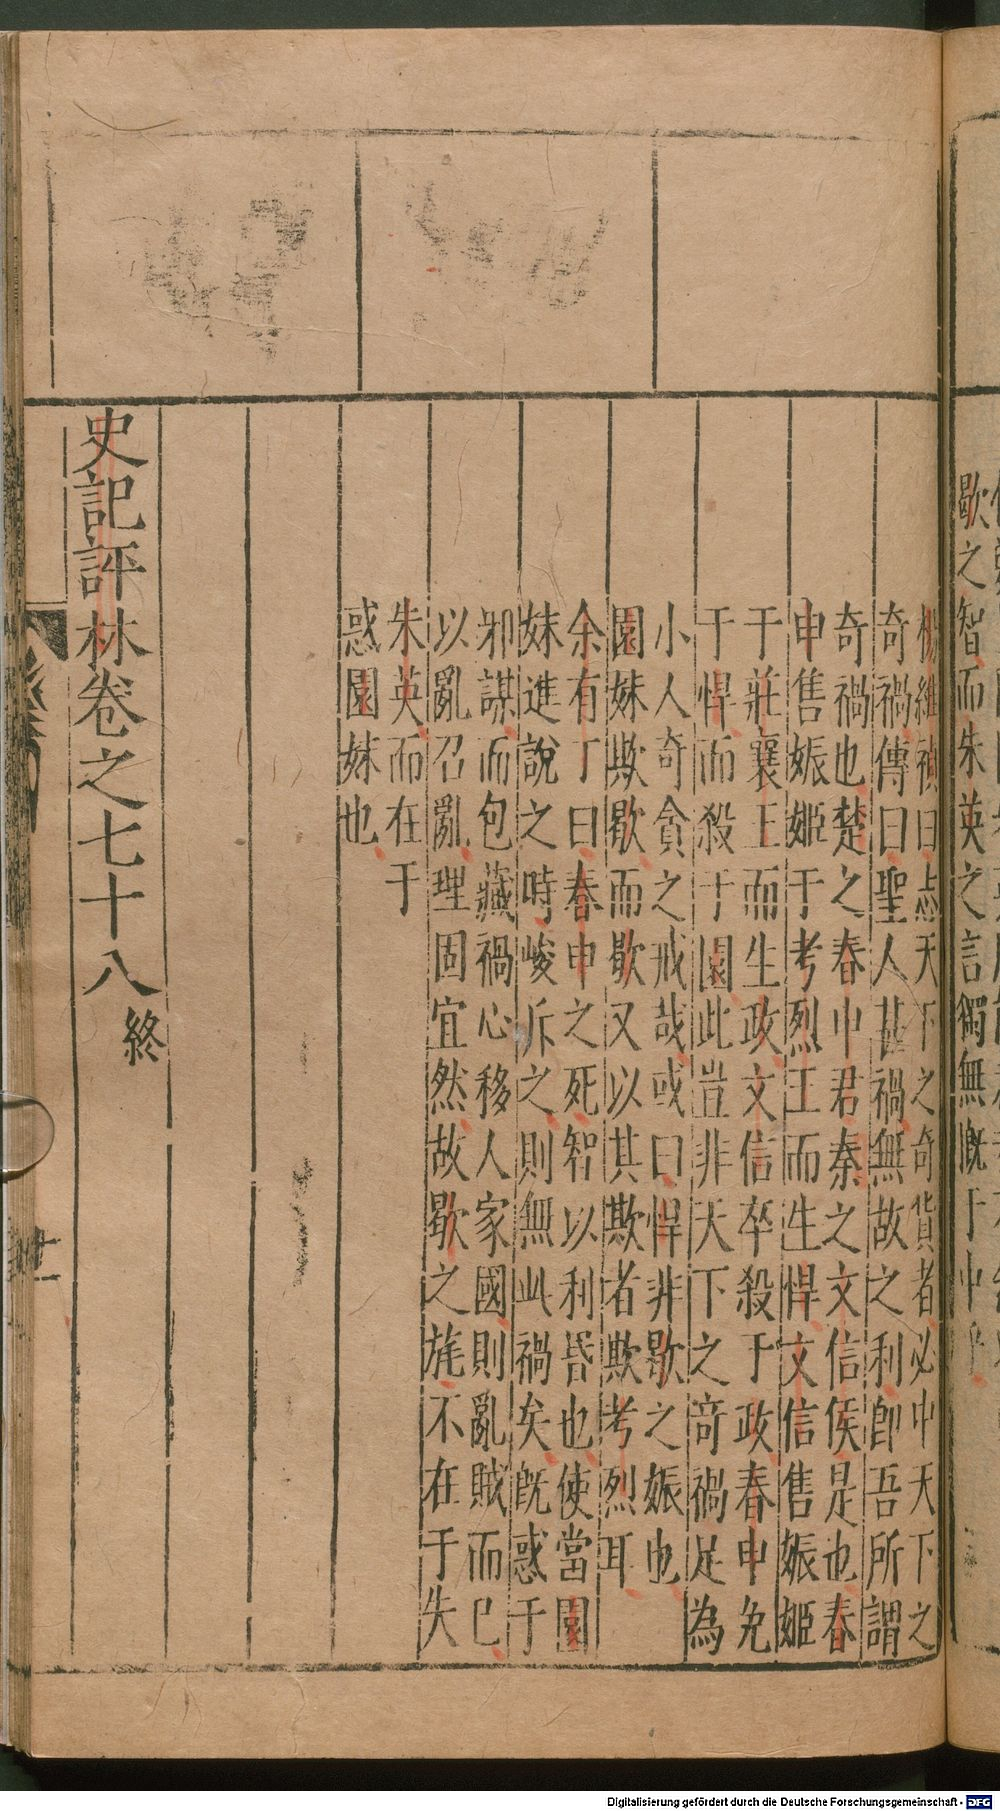 歇之智而朱英之言獨無慨于中乎
楊維禎曰志天下之奇貨者必中天下之
奇禍傳曰聖人甚禍無故之利卽吾所謂
奇禍也楚之春申君秦之文信侯是也春
申售娠姬于考烈王而生悍文信售娠姬
于莊襄王而生政文信卒殺于政春申免
于悍而殺于園此豈非天下之奇禍足為
小人奇貪之戒哉或曰悍非歇之娠也
園妹欺歇而歇又以其欺者欺考烈耳
余有丁曰春申之死智以利昏也使當園
妹進說之時峻斥之則無此禍矣旣惑于
邪謀而包藏禍心移人家國則亂賊而已
以亂召亂理固宜然故歇之旤不在于失
朱英而在于
惑園妹也
史記評林卷之七十八 終
Digitalisierung gefördert durch die Deutsche Forschungsgemeinschaft - DFG